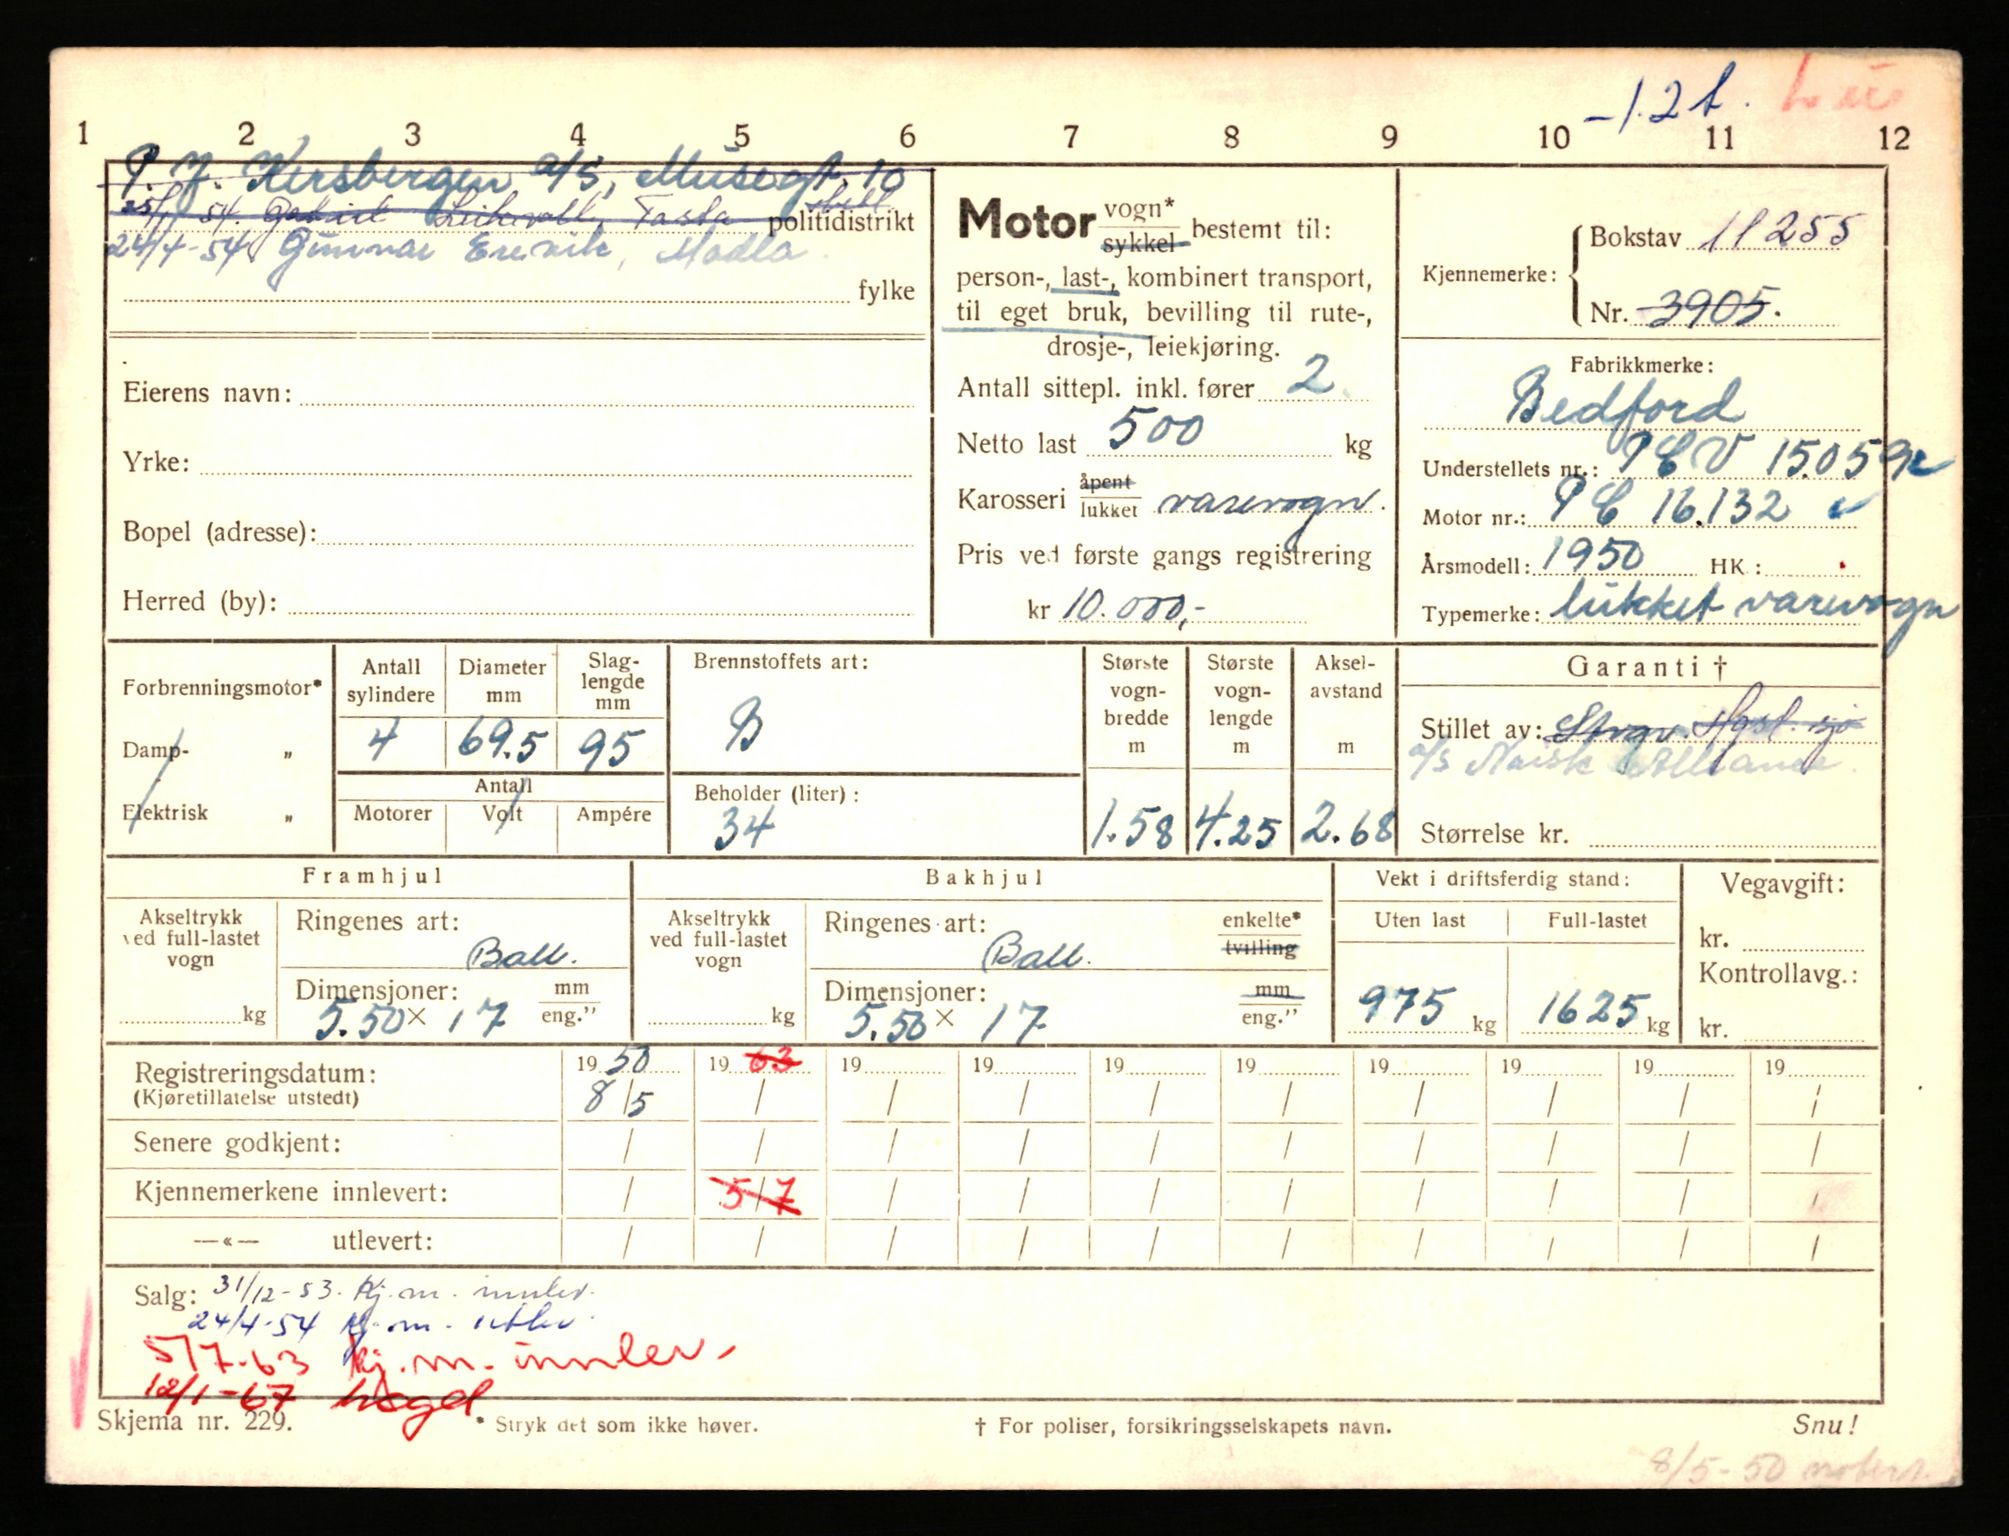 -1.2 t.
1 2 3 4 5 6 7 8 9 10 11 12
P. Kersbergen a/s, Musegt. 10
54 Tasta
politidistrikt
24/4-54 Gunnar Madla
fylke
Eierens navn:
Yrke:
Bopel (adresse):
Herred (by):
Motor vogn* sykkel bestemt til:
person-, last-, kombinert transport,
til eget bruk, bevilling til rute-,
drosje-, leiekjøring.
Antall sittepl. inkl. fører 2
Netto last 500 kg
Karosseri åpent lukket varevogn.
Pris ved første gangs registrering
kr 10.000,-
Kjennemerke: Bokstav 11255
Nr. 3905.
Fabrikkmerke:
Bedford
Understellets nr.: PCV 15.059
Motor nr.: PC 16.132
Årsmodell: 1950 HK.:
Typemerke: lukket varevogn
Forbrenningsmotor*
Damp- „
Elektrisk „
Antall sylindere
4
Diameter mm
69.5
Slag-
lengde
mm
95
Antall
Motorer Volt Ampére
Brennstoffets art:
B
Beholder (liter):
34
Største
vogn-
bredde
m
1.58
Største
vogn-
lengde
m
4.25
Aksel-
avstand
m
2.68
Garanti †
Stillet av:
a/s Norsk Alliance.
Størrelse kr.
Framhjul
Akseltrykk
ved full-lastet
vogn
kg
Ringenes art:
Ball.
Dimensjoner: mm
5.50 × 17 eng.”
Bakhjul
Akseltrykk
ved full-lastet
vogn
kg
Ringenes art: enkelte*
Ball. tvilling
Dimensjoner: mm
5.50 × 17 eng.”
Vekt i driftsferdig stand:
Uten last Full-lastet
975 kg 1625 kg
Vegavgift:
kr.
Kontrollavg.:
kr.
Registreringsdatum: 19 50 19 63 19 19 19 19 19 19 19 19
(Kjøretillatelse utstedt) 8/5 / / / / / / / / /
Senere godkjent: / / / / / / / / / /
Kjennemerkene innlevert: / 5/7 / / / / / / / /
—«— utlevert: / / / / / / / / / /
Salg: 31/12-53. Kj.m. innlev.
24/4-54 Kj.m. utlev.
5/7-63 kj.m. innlev.
12/1-67 hogd
Skjema nr. 229.
* Stryk det som ikke høver.
† For poliser, forsikringsselskapets navn.
Snu!
8/5-50